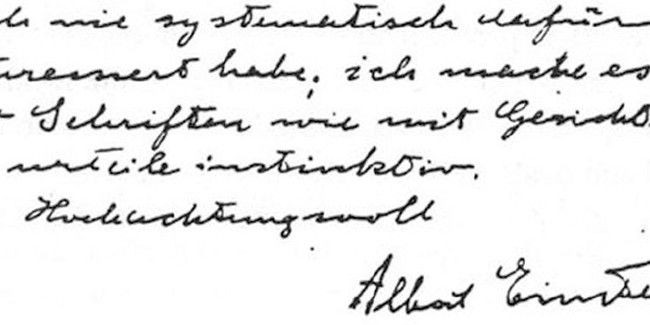 ch nie systematisch dafür
teressiert habe; ich mache es
t Schriften wie mit Gesicht
urteile instinktiv.
Hochachtungsvoll
Albert Einste